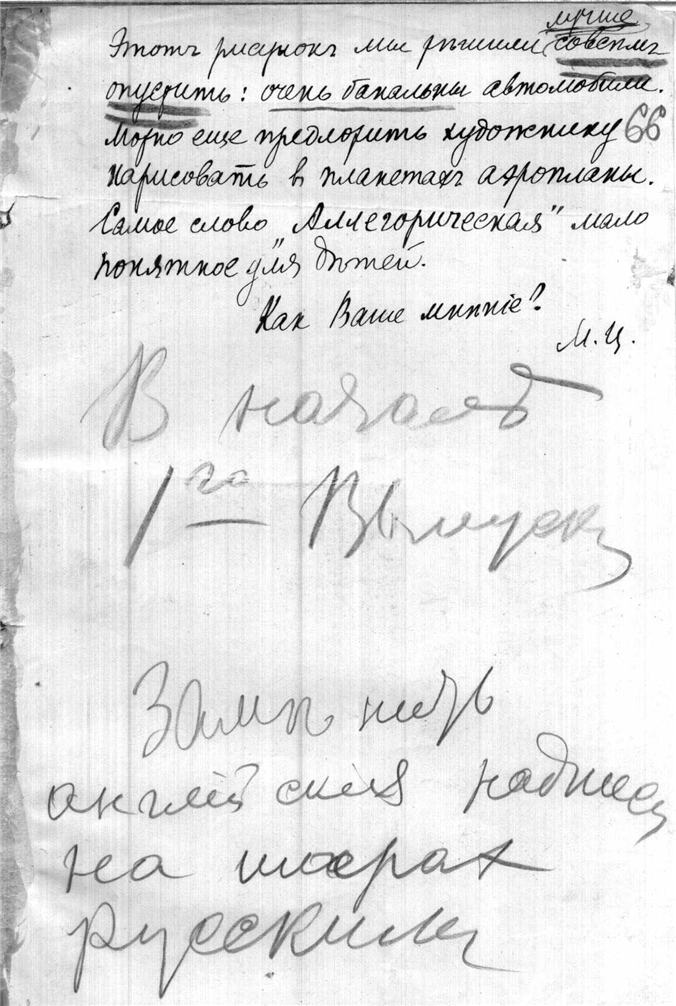 лучше
Этотъ рисунокъ мы рѣшили совсѣмъ
опустить: очень банальны автомобили.
Можно еще предложить художнику 66
нарисовать в планетахъ аэропланы.
Самое слово "Аллегорическая" мало
понятное для дѣтей.
Как Ваше мнѣніе?
М. Ц.
В началѣ
1го Выпуска
Замѣнить
английския надписи
на шарах
русскими